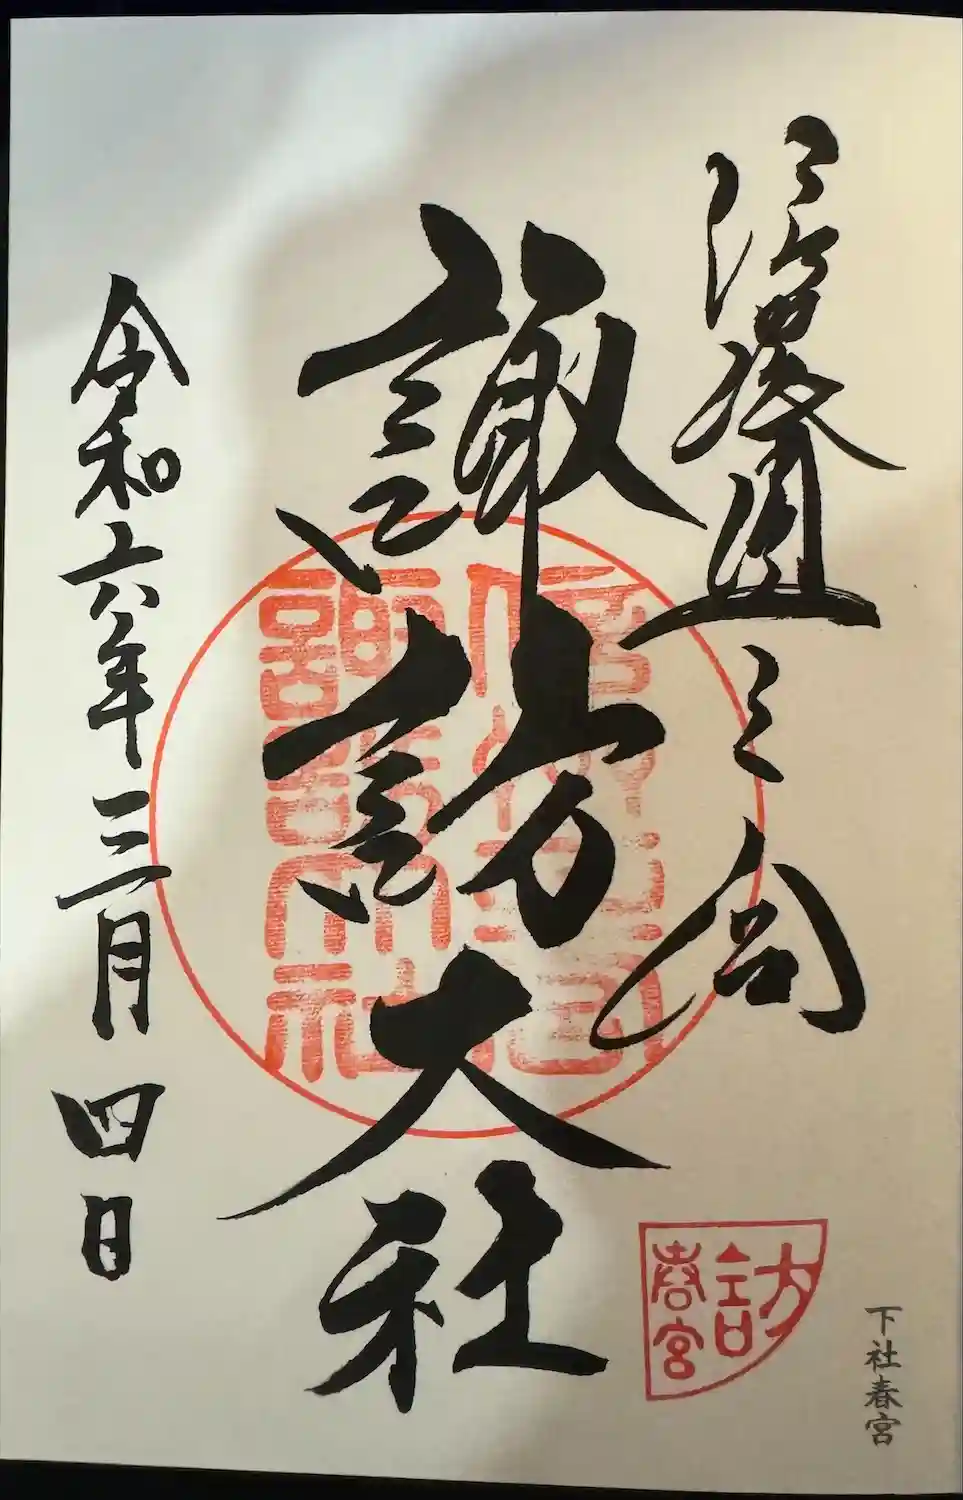 下社春宮
信濃國一之宮
諏訪大社
令和六年三月四日
諏訪大社
訪
春宮